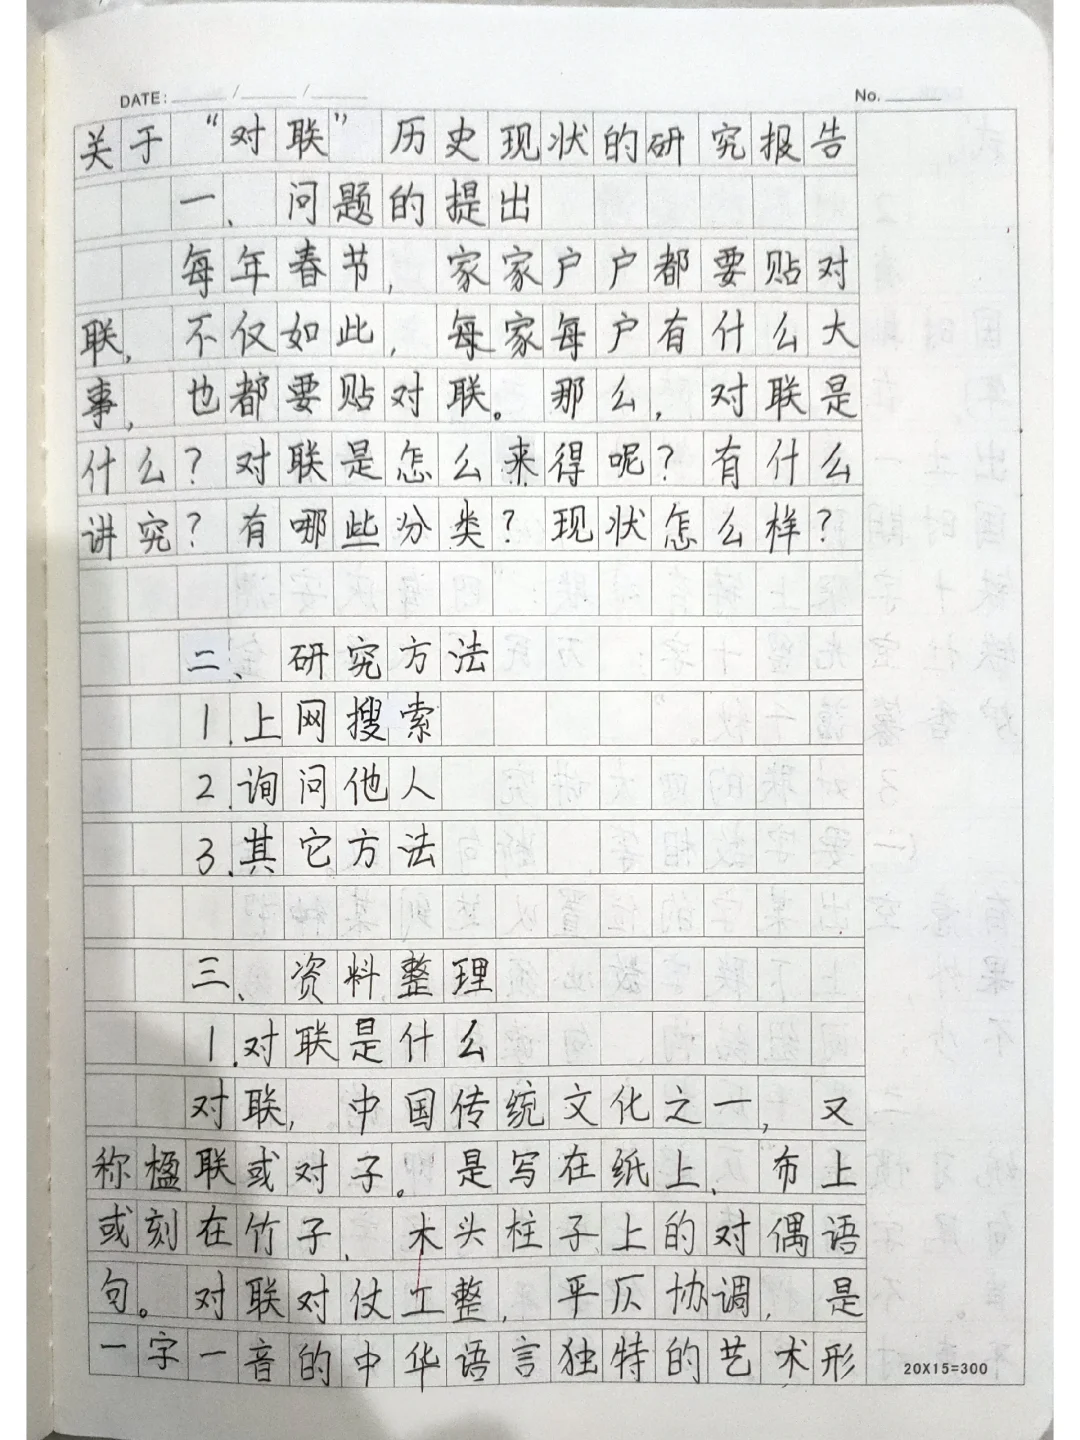 DATE: ____ / ____ / ____ No. ____
关于“对联”历史现状的研究报告
一、问题的提出
每年春节，家家户户都要贴对
联，不仅如此，每家每户有什么大
事，也都要贴对联。那么，对联是
什么？对联是怎么来得呢？有什么
讲究？有哪些分类？现状怎么样？
二、研究方法
1.上网搜索
2.询问他人
3.其它方法
三、资料整理
1.对联是什么
对联，中国传统文化之一，又
称楹联或对子。是写在纸上、布上
或刻在竹子、木头柱子上的对偶语
句。对联对仗工整，平仄协调，是
一字一音的中华语言独特的艺术形
20X15=300